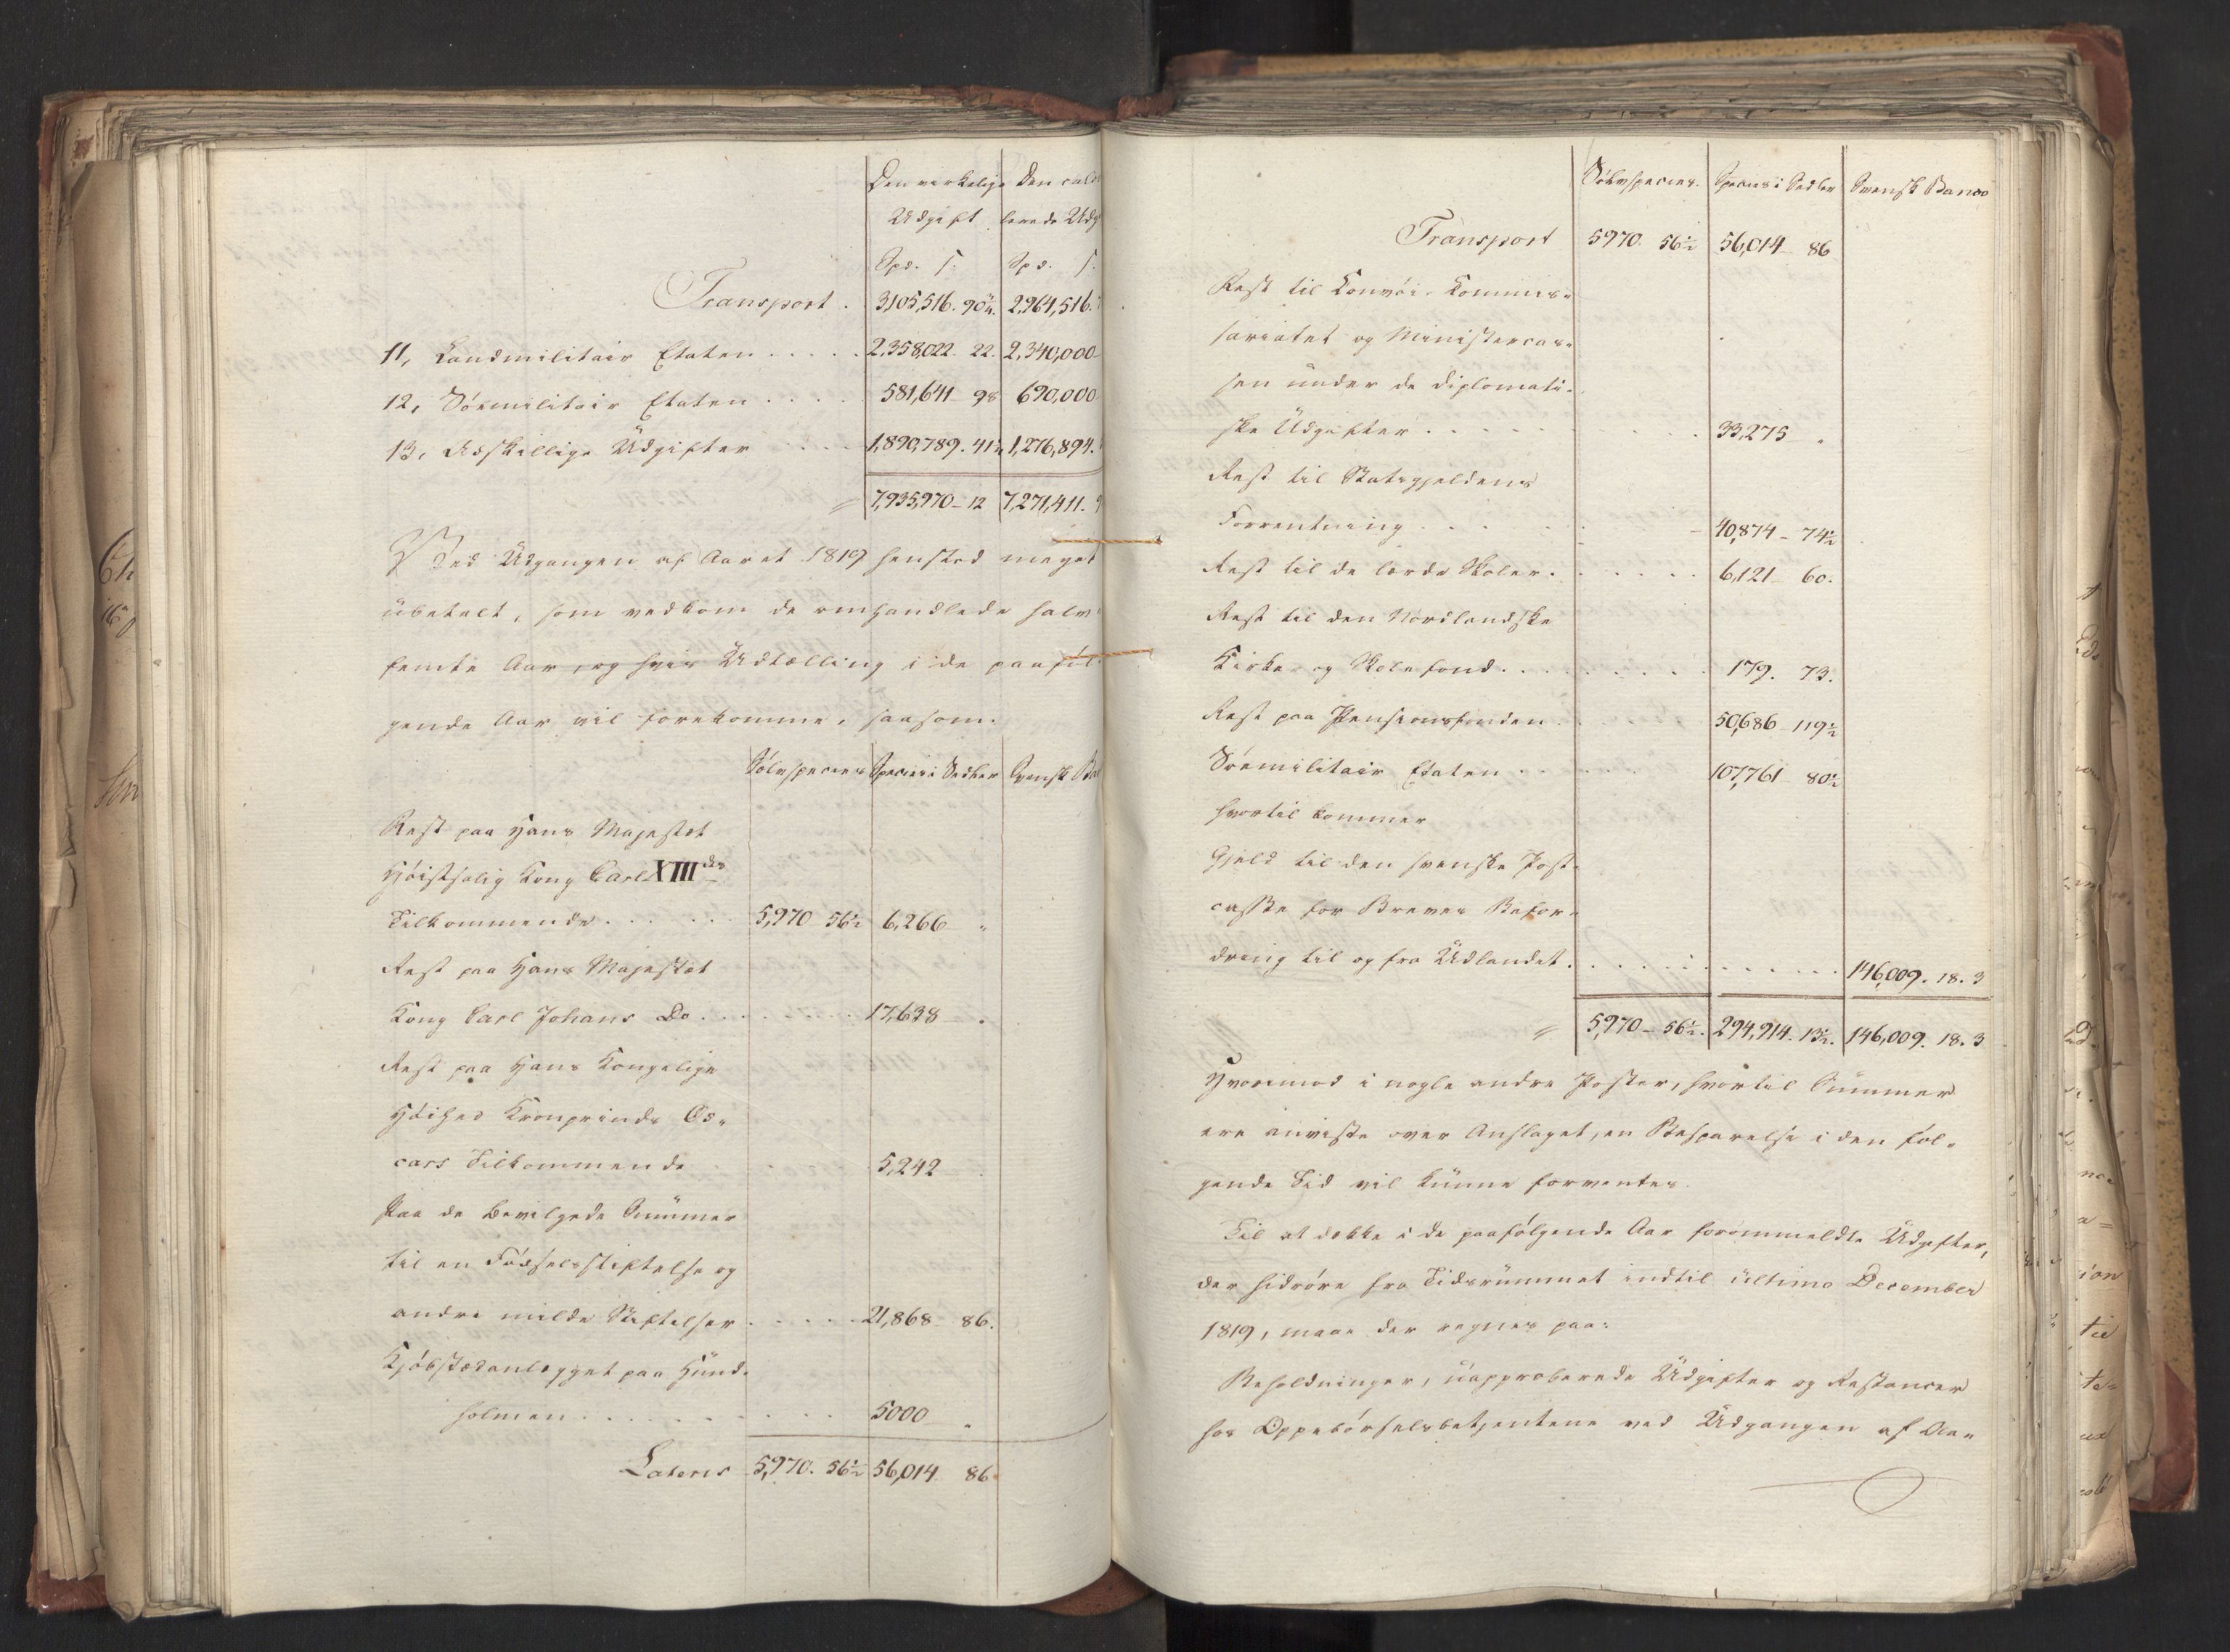 Den virkelige Den calcu
Udgift lerede Udg
Spd. ſ. Spd. ſ.
Transport . 3,105,516. 90¾. 2,964,516.
11, Landmilitair Etaten . . . . . 2,358,022. 22. 2,340,000
12, Søemilitair Etaten . . . . 581,641 98 690,000
13, Adskillige Udgifter . . . 1,890,789. 41¼ 1,276,894.
= 7,935,970 - 12 7,271,411.
Ved Udgangen af Aaret 1819 henstod meget
ubetalt, som vedkom de omhandlede halv
femte Aar, og hvis Udtælling i de paaføl-
gende Aar vil forekomme, saasom:
Sølvspecies Species i Sedler Svensk Ba
Rest paa Hans Majestæt
Høistsalig Kong Carl XIII des
Tilkommende . . . . . . 5,970 56½ 6,266 "
Rest paa Hans Majestæt
Kong Carl Johans Do . . . . . . . 17,638 "
Rest paa Hans Kongelige
Høihed Kronprinds Os-
cars Tilkommende 5,242
Paa de bevilgede Summer
til en Fødselsstiftelse og
andre milde Stiftelser . . . . . 21,868 86.
Kjøbstædanlægget paa Hund-
holmen . . . . . . . . . . 5000 "
Lateris 5,970. 56½ 56,014 86
Sølvspecies. Species i Sedler Svensk Banco
Transport 5970. 56½ 56,014 86
Rest til Konvoi- Kommis-
sariatet og Ministercas-
sen under de diplomati-
ske Udgifter . . . . . . . . . 33,275 "
Rest til Statsgjeldens
Forrentning . . . . . - 40,874 - 74½
Rest til de lærde Skoler . . . . . . 6,121 60.
Rest til den Nordlandske
Kirke- og Skolefond . . . . . . . 179. 73.
Rest paa Pensionsfonden . . . . 50,686 - 119½
Søemilitair Etaten . . . . . 107,761 80½
hvortil kommer
Gjeld til den svenske Post-
casse for Breves Befor-
dring til og fra Udlandet . . . . . . . . . . . 146,009. 18. 3
= 5,970 - 56½. 294,914. 13½. 146,009. 18. 3
Hvorimod i nogle andre Poster, hvortil Summer
ere anviste over Anslaget, en Besparelse i den føl-
gende Tid vil kunne forventes.
Til at dække i de paafølgende Aar forommeldte Udgifter,
der hidrøre fra Tidsrummet indtil ultimo December
1819, maae der regnes paa:
Beholdninger, uapproberede Udgifter og Restancer
hos Oppebørselsbetjentene ved Udgangen af Aa-